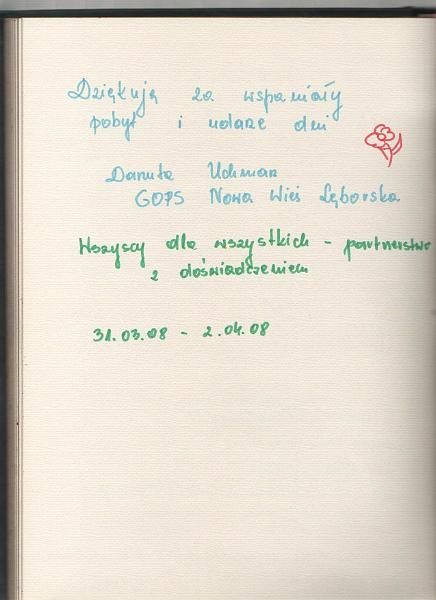 Dziękuję za wspaniały
pobyt i udane dni
Danuta
GOPS Nowa Wieś Lęborska
Wszyscy dla wszystkich - partnerstwo
z doświadczeniem
31.03.08 - 2.04.08